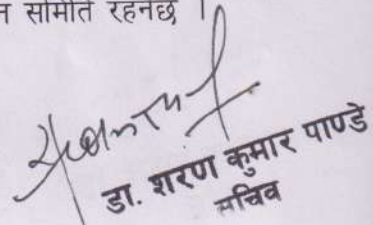 न समिति रहनेछ ।
डा. शरण कुमार पाण्डे
सचिव